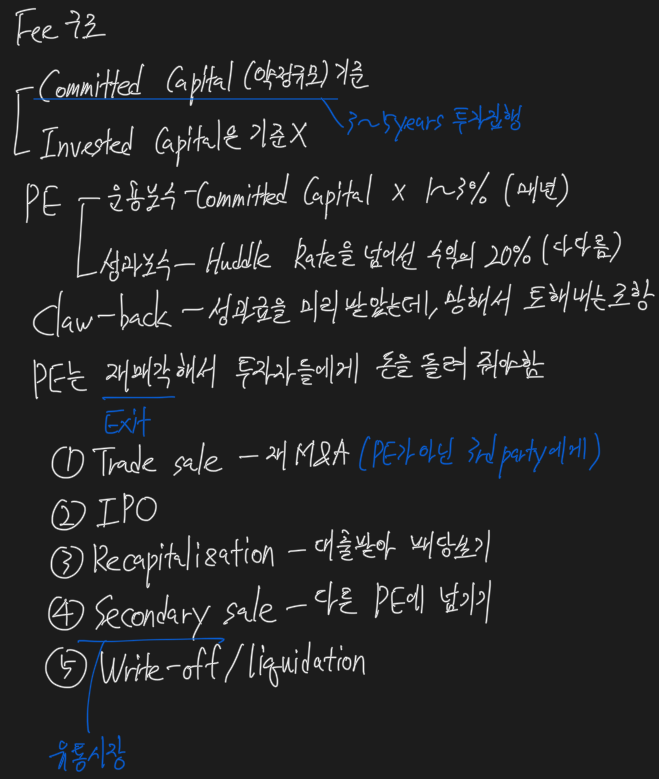 Fee 구조
Committed Capital (약정규모) 기준
3~5years 투자집행
Invested Capital은 기준X
PE - 운용보수 - Committed Capital x 1~3% (매년)
성과보수 - Huddle Rate을 넘어선 수익의 20% (다 다름)
Claw-back - 성과급을 미리 받았는데, 망해서 토해내는 조항
PE는 재매각해서 투자자들에게 돈을 돌려 줘야함
Exit
① Trade sale - 재 M&A (PE가 아닌 3rd party에게)
② IPO
③ Recapitalisation - 대출받아 배당쏘기
④ Secondary sale - 다른 PE에 넘기기
⑤ Write-off/liquidation
유통시장